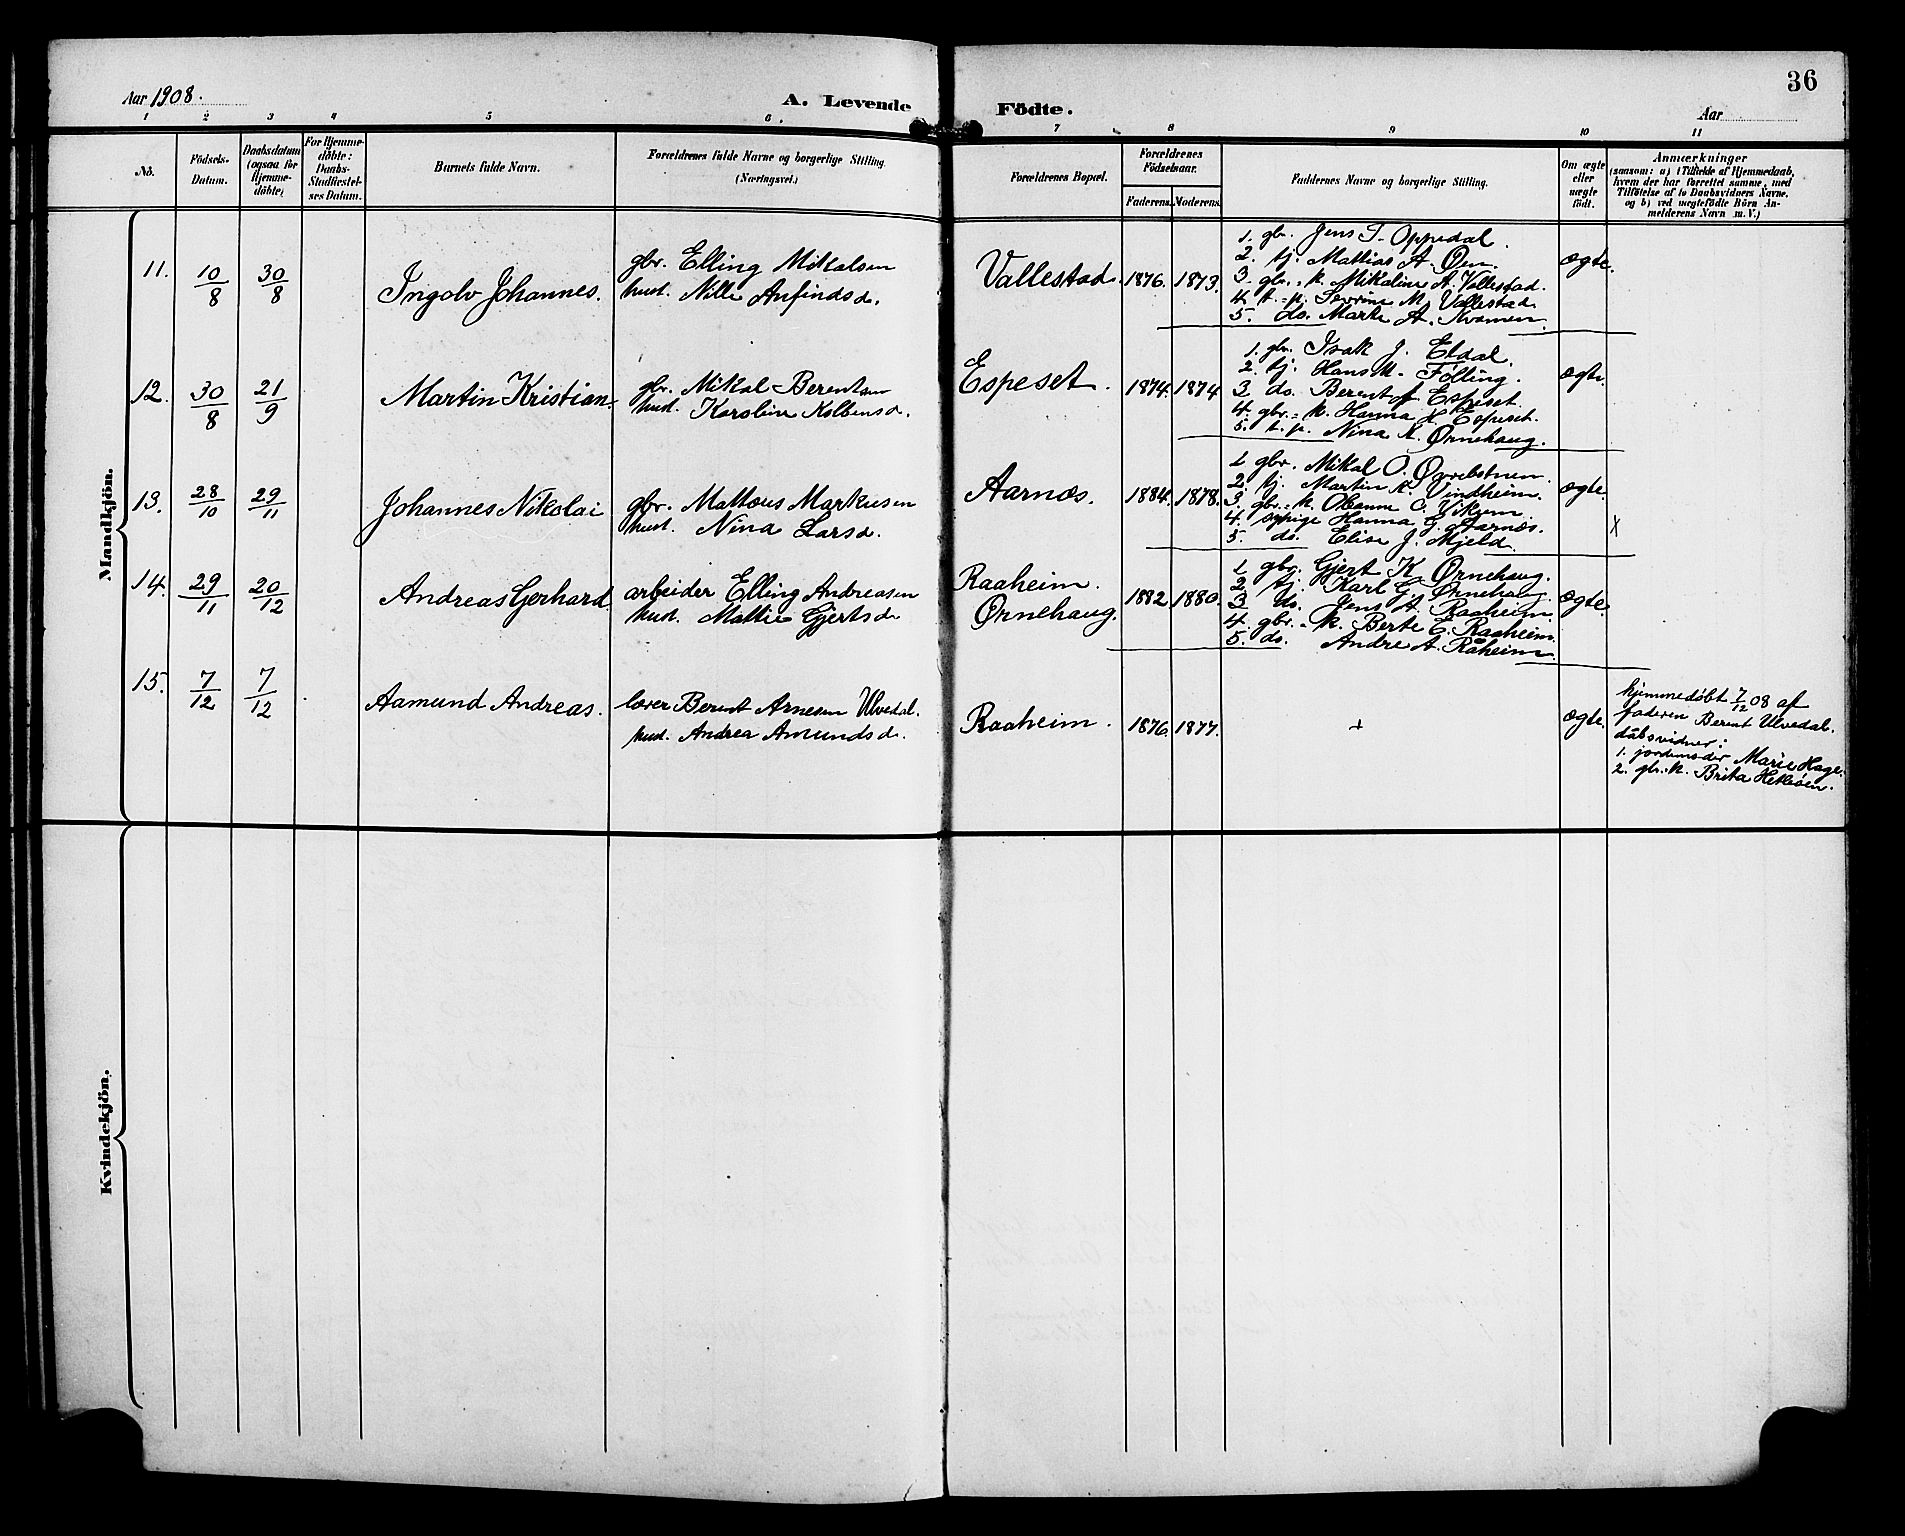 Aar 1908.
A. Levende Födte.
Aar
36
1 2 3 4 5 6 7 8 9 10 11
No.
Födsels-Datum.
Daabsdatum (ogsaa for Hjemme-döbte)
For Hjemme-döbte: Daabs-Stadfæstel-ses Datum.
Barnets fulde Navn.
Forældrenes fulde Navne og borgerlige Stilling. (Næringsvei.)
Forældrenes Bopæl.
Forældrenes Födselsaar.
Faderens. Moderens.
Faddernes Navne og borgerlige Stilling.
Om ægte eller uægte födt.
Anmærkninger
(saasom: a) i Tilfælde af Hjemmedaab,
hvem der har forrettet samme, med
Tilföielse af to Daabsvidners Navne,
og b) ved uægtefödte Börn An-
melderens Navn m. V.)
Mandkjön.
11. 10/8 30/8 Ingolv Johannes.
gbr. Elling Mikalsen
hust. Nille Anfindsd.
Vallestad 1876. 1873.
1. gbr. Jens T. Oppedal.
2. tj. Mathias A. Øen.
3. gbr.-k. Mikaline A. Vallestad.
4. t.-p. Serine M. Vallestad.
5. do. Marte A. Kvamen.
ægte.
12. 30/8 21/9 Martin Kristian.
gbr. Mikal Berentsen
hust. Karoline Kolbensd.
Espeset. 1874. 1874
1. gbr. Isak J. Eldal.
2. tj. Hans M. Følling.
3 do. Berent A Espeset.
4. gbr.-k. Hanna H. Espeset.
5. t.p. Nina K. Ørnehaug.
ægte.
13. 28/10 29/11 Johannes Nikolai
gbr. Mathæus Markusen
hust. Nina Larsd.
Aarnæs. 1884. 1878.
1 gbr. Mikal O. Øvrebotnen.
2. tj. Martin K. Vindheim.
3. gbr.-k Oleanne O. Vikum.
4. pige Hanna G. Aarnæs.
5. do. Elise J. Mjeld.
ægte. x
14. 29/11 20/12 Andreas Gerhard
arbeider Elling Andreasen
hust. Mathie Gjertsd
Raaheim.
Ørnehaug. 1882 1880.
1 gbr. Gjert K. Ørnehaug.
2 tj. Karl G. Ørnehaug.
3 do. Jens A. Raaheim.
4. gbr.-k. Berte E. Raaheim.
5. do. Andre A. Råheim.
ægte.
15. 7/12 7/12 Aamund Andreas.
lærer Berent Arnesen Ulvedal.
hust. Andrea Amundsd.
Raaheim. 1876. 1877. + ægte.
hjemmedøbt 7/12 08 af
faderen Berent Ulvedal.
dåbsvidner:
1. jordemoder Marie Hage.
2. gbr.k. Brita Hetleøen.
Kvindekjön.